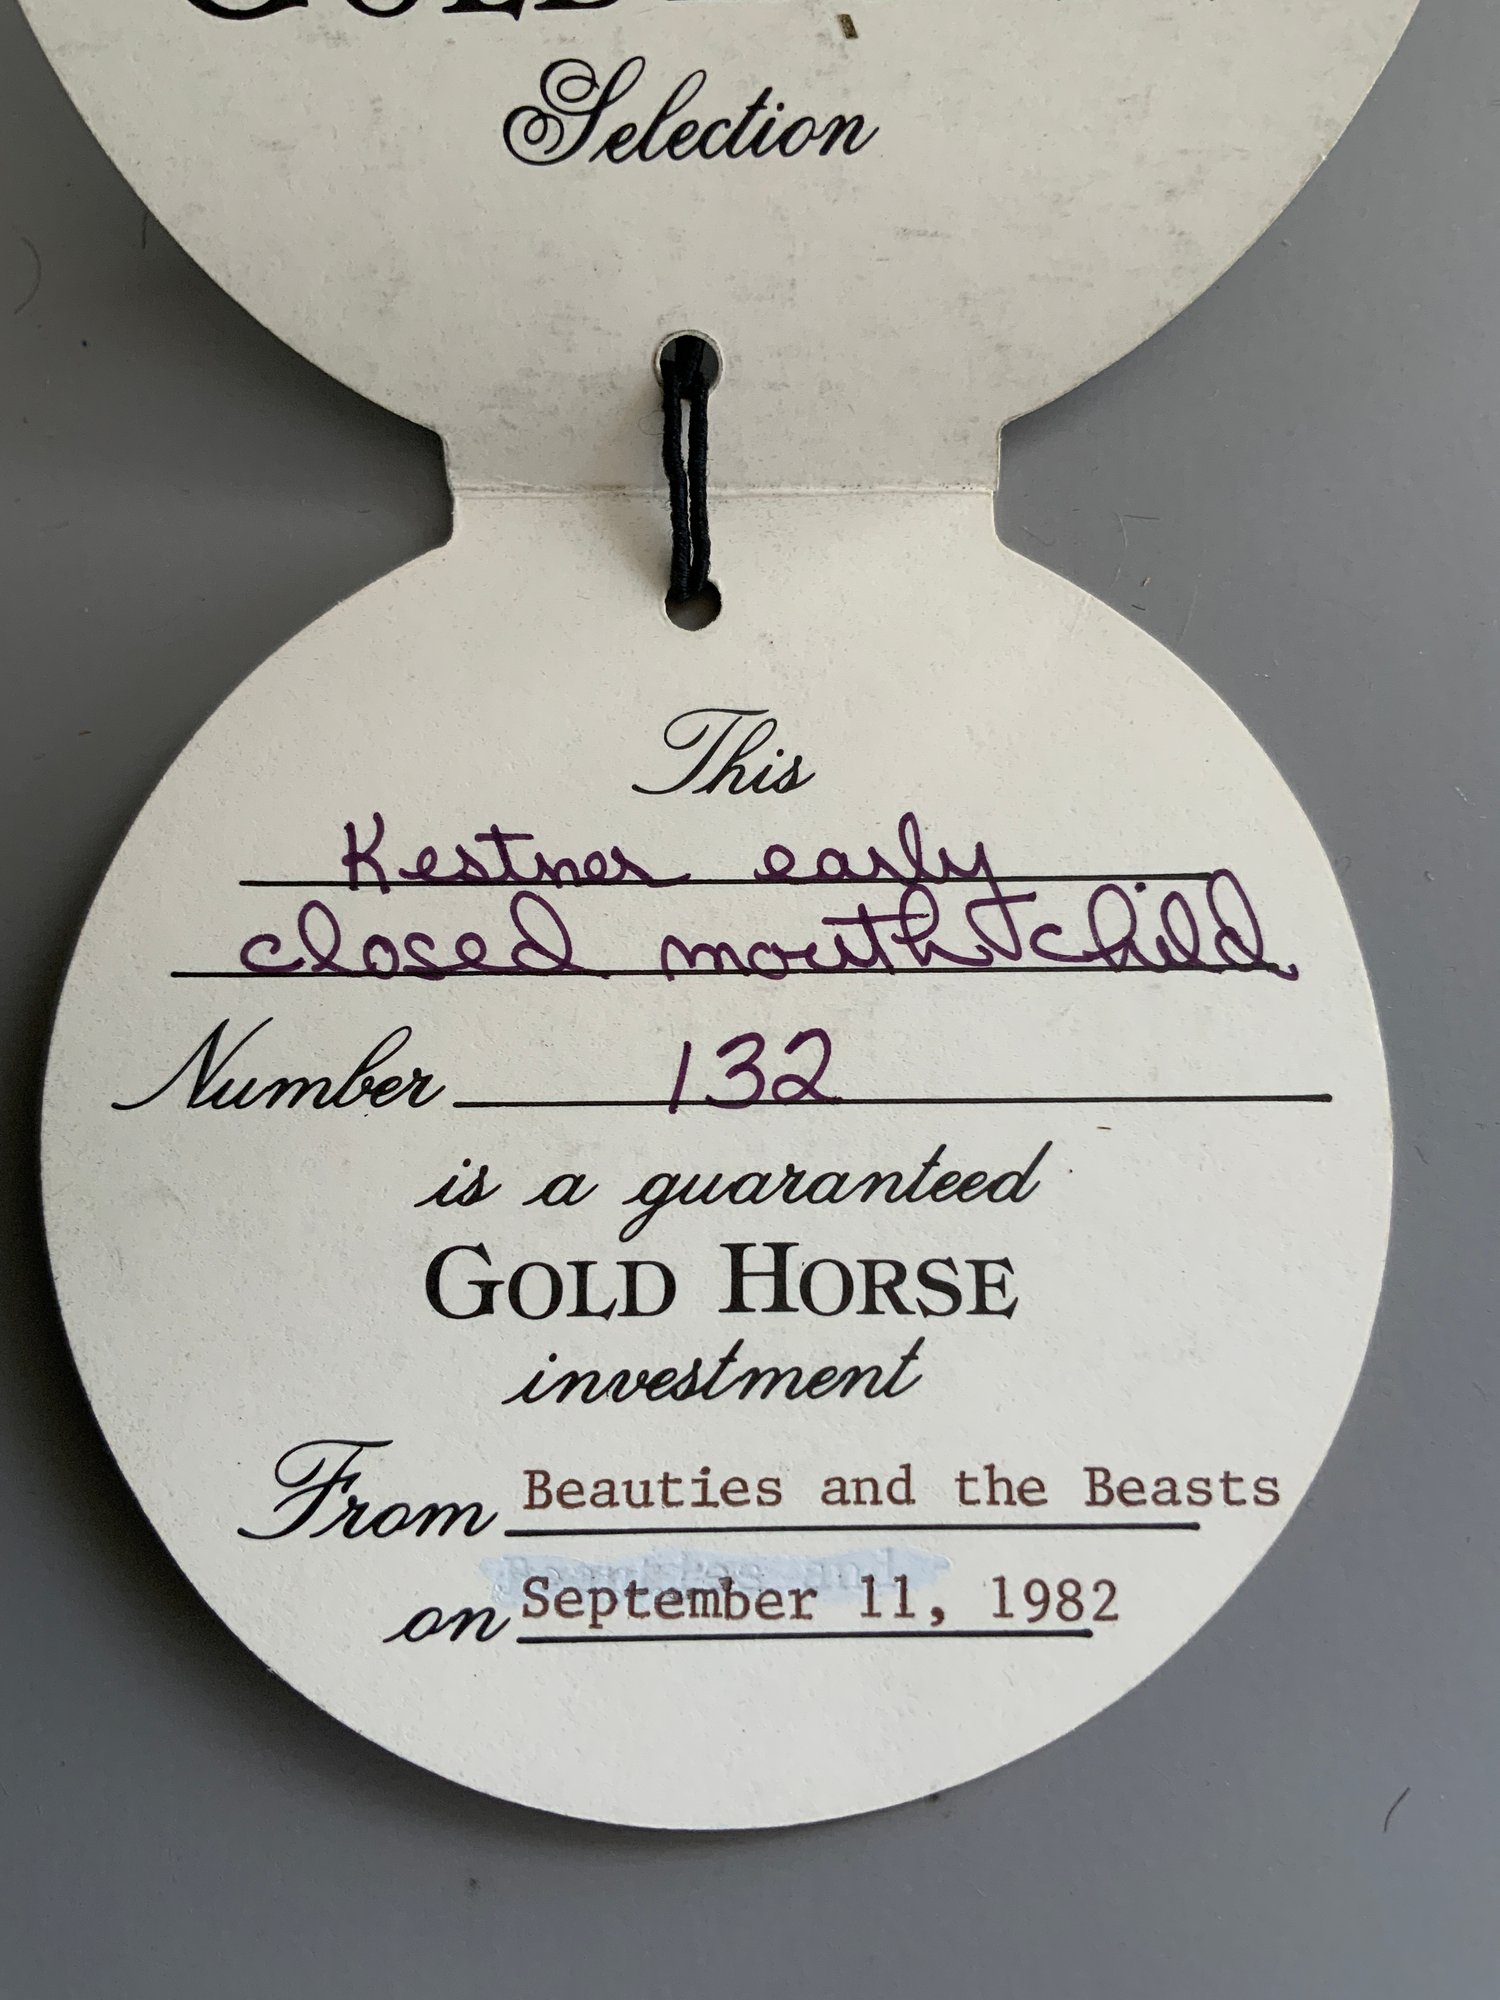 GOLD
Selection
This
Kestner early
closed mouth child
Number 132
is a guaranteed
GOLD HORSE
investment
From Beauties and the Beasts
on September 11, 1982